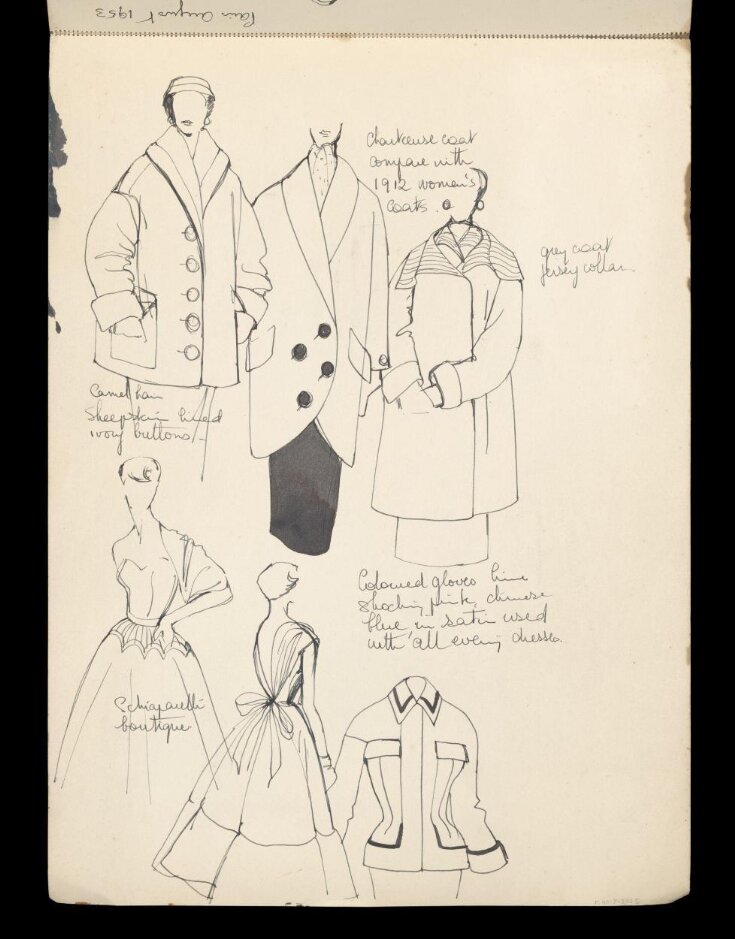 Paris August 1953
Chartreuse coat
compare with
1912 women's
coats.
grey coat
jersey collar.
Camel hair
Sheepskin lined
ivory buttons
Coloured gloves lime
shocking pink, chinese
blue in satin used
with all evening dresses.
Schiaparelli
boutique